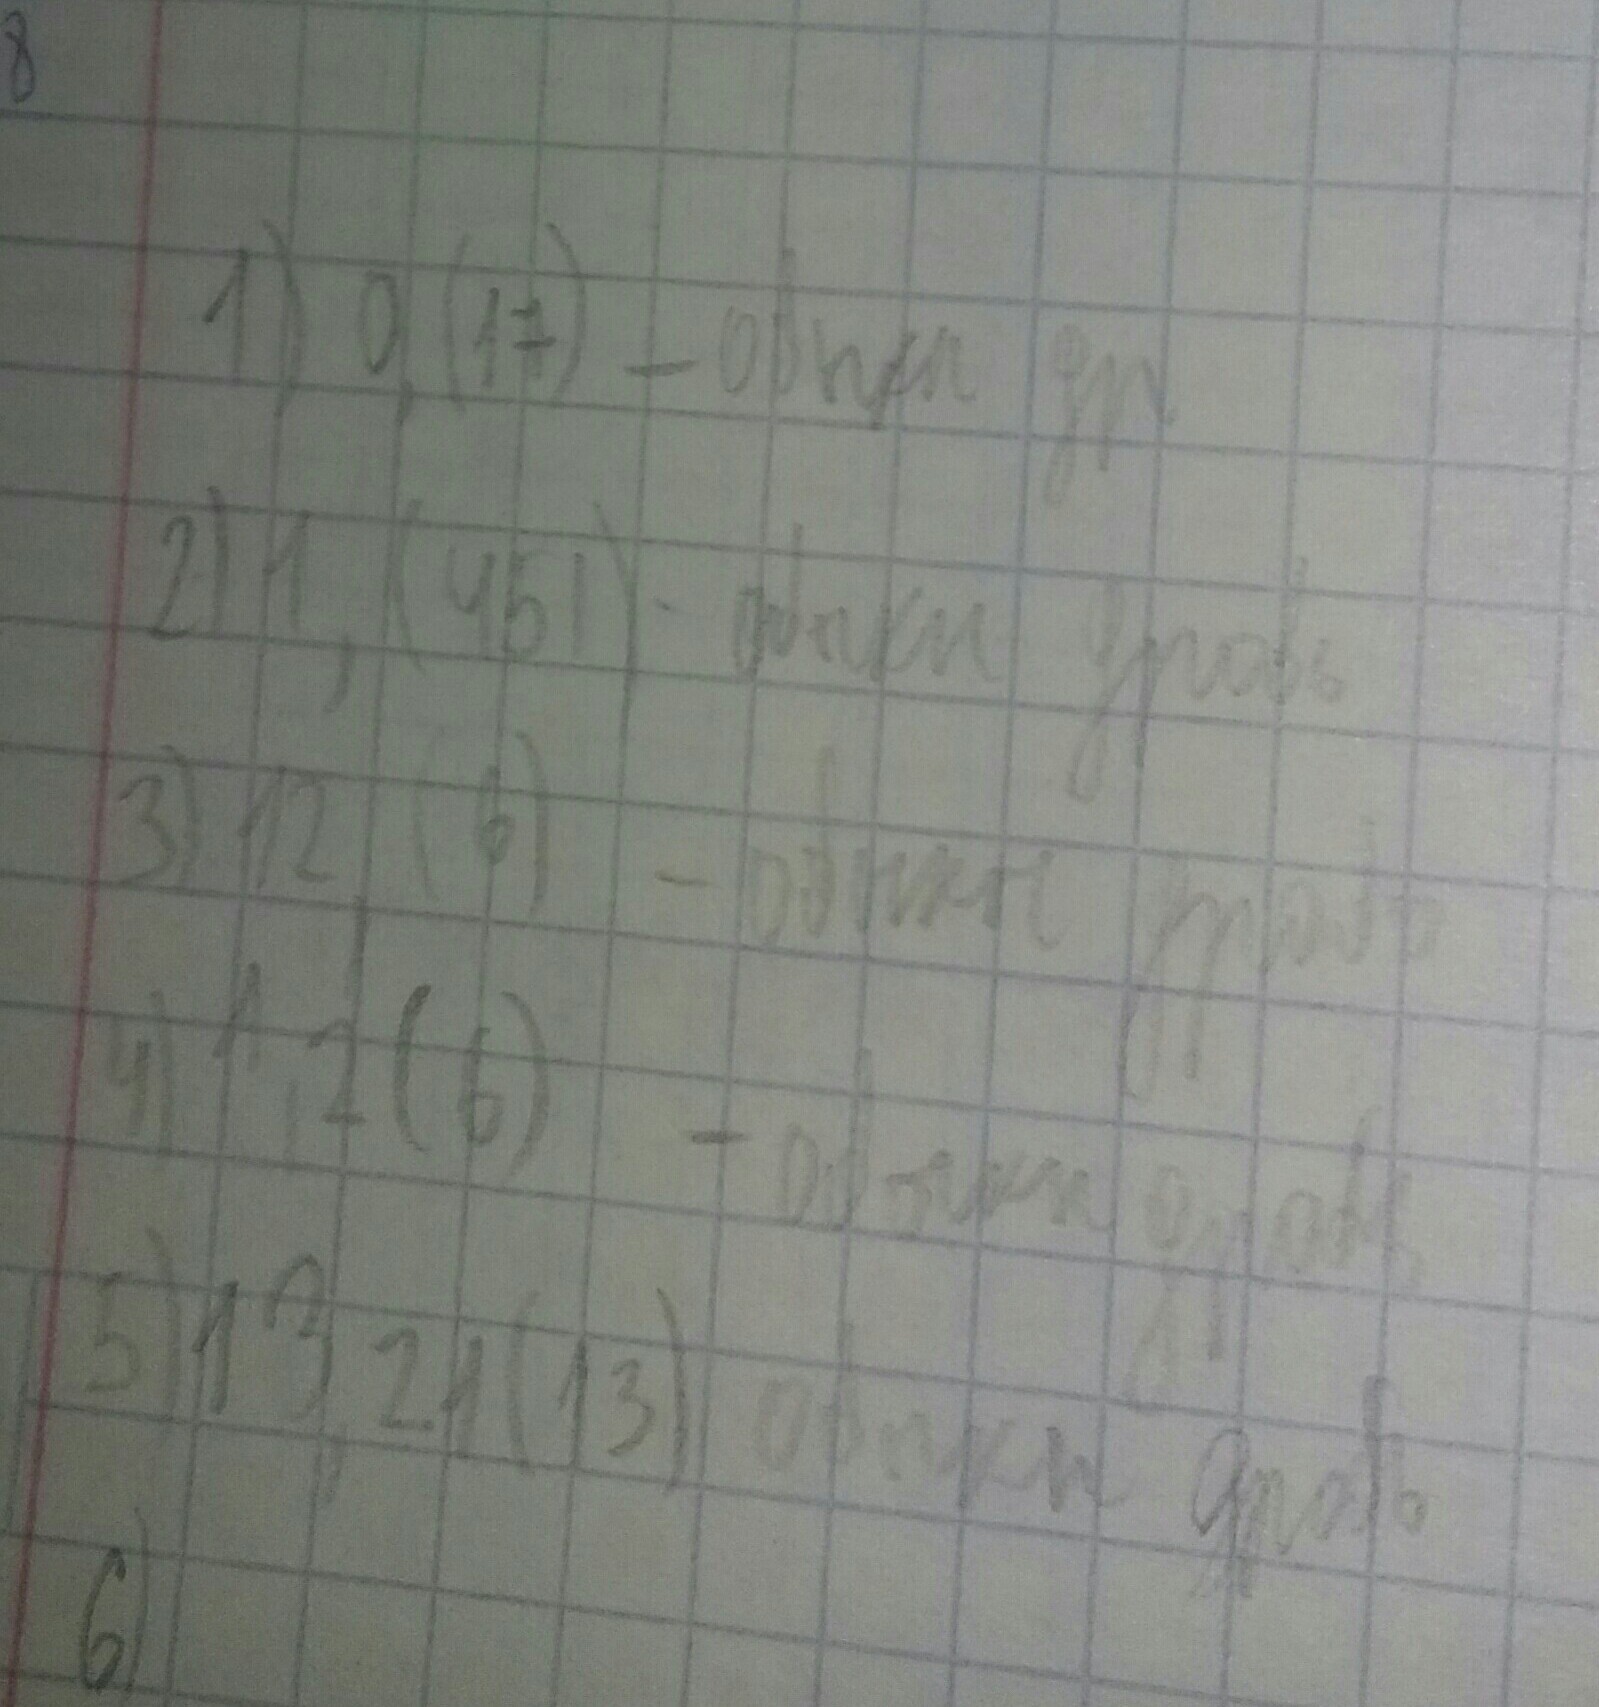 8
1) 0,(17) - обыкн др
2) 1,(451) - обыкн дробь
3) 12,(6) - обыкн дробь
4) 1,2(6) - обыкн дробь
5) 13,21(13) обыкн дробь
6)